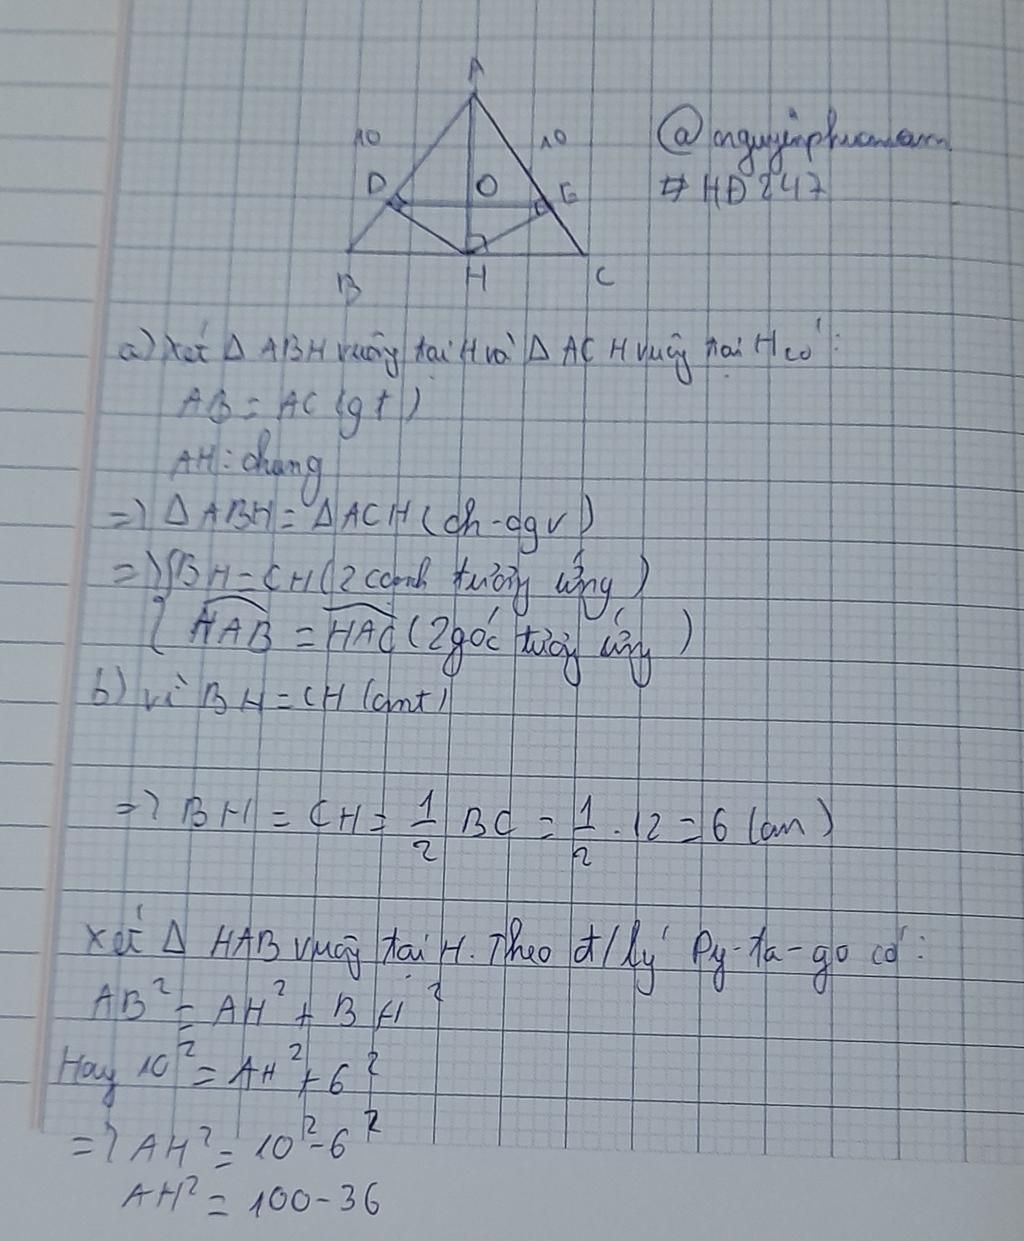 A
10 10
D O E
B H C
@nguyenphucnam
#HĐ247
a) Xét Δ ABH vuông tại H và Δ ACH vuông tại H có:
AB = AC (gt)
AH: chung
=> Δ ABH = Δ ACH (ch-cgv)
=> { BH = CH (2 cạnh tương ứng)
{ HAB = HAC (2 góc tương ứng)
b) vì BH = CH (cmt)
=> BH = CH = 1/2 BC = 1/2 . 12 = 6 (cm)
Xét Δ HAB vuông tại H. Theo đ/lý Py-ta-go có:
AB² = AH² + BH²
Hay 10² = AH² + 6²
=> AH² = 10² - 6²
AH² = 100 - 36